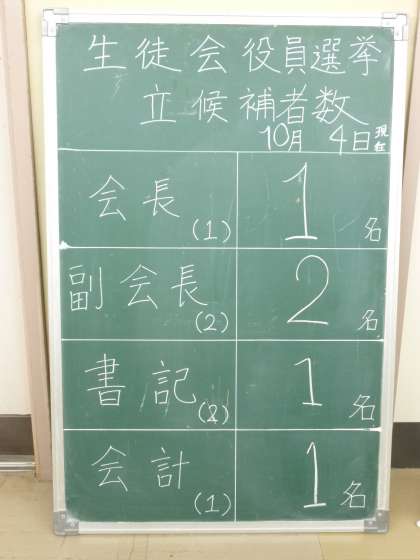 生徒会役員選挙
立候補者数
10月 4日現在
会長(1) 1名
副会長(2) 2名
書記(2) 1名
会計(1) 1名